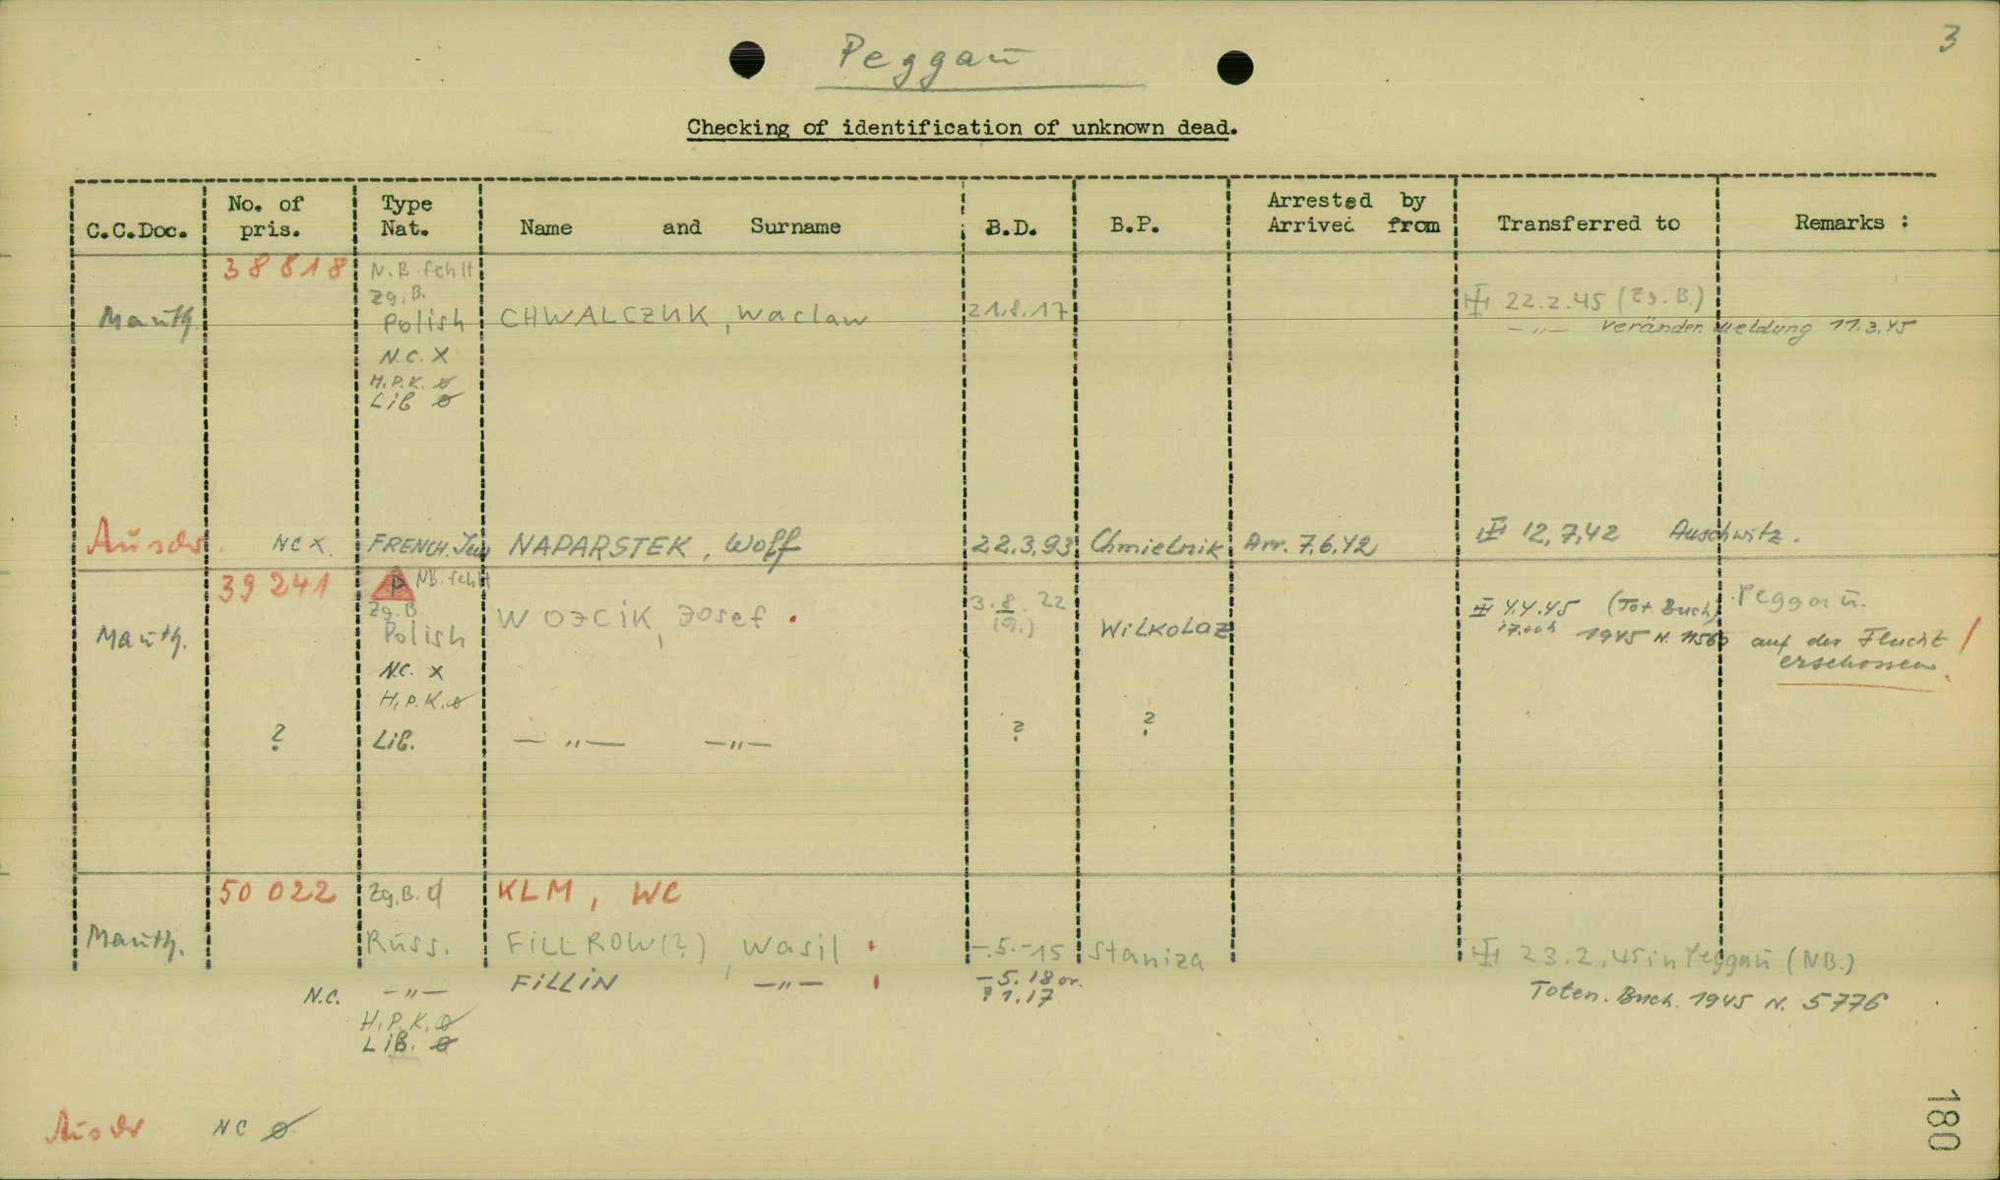 3
Peggau
Checking of identification of unknown dead.
C.C.Doc. No. of pris. Type Nat. Name and Surname B.D. B.P. Arrested by Arrived from Transferred to Remarks :
38818 N.B. fehlt
Zg.B.
Mauth. Polish CHWALCZUK, Waclaw 21.8.17 22.2.45 (Zg.B.)
—"— Veränder. Meldung 11.3.45
N.C. X
H.P.K. ø
Lib ø
Ausdr. NC X. FRENCH. Jew NAPARSTEK, Wolf 22.3.93 Chmielnik Arr. 7.6.42 12.7.42 Auschwitz.
39241 P NB. fehlt
Zg.B
Mauth. Polish WOJCIK, Josef. 3.8.22 (9.) WILKOLAZ 4.4.45 (Tot. Buch) Peggau.
17.00h 1945 N. auf der Flucht /
erschossen.
N.C. X
H.P.K. ø
? Lib. —"— —"— ? ?
50022 Zg.B. KLM, WC
Mauth. Russ. FILLROW(?), Wasil -.5.-15 Staniza 23.2.45 in Peggau (NB.)
N.C. —"— FILLIN, —"— -5.18 or.
? 1.17
Toten. Buch. 1945 N. 5776
H.P.K. ø
LiB. ø
Ausdr NC ø
180